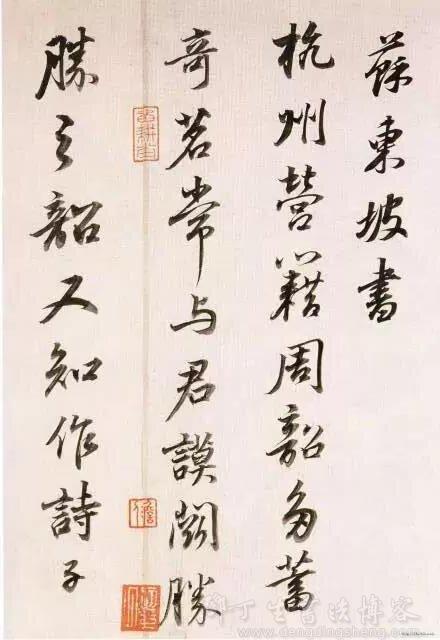 蘇東坡書
杭州營籍周韶多蓄
奇茗常与君謨鬪勝
勝之韶又知作詩子
丁生書法博客
dengdingsheng.com